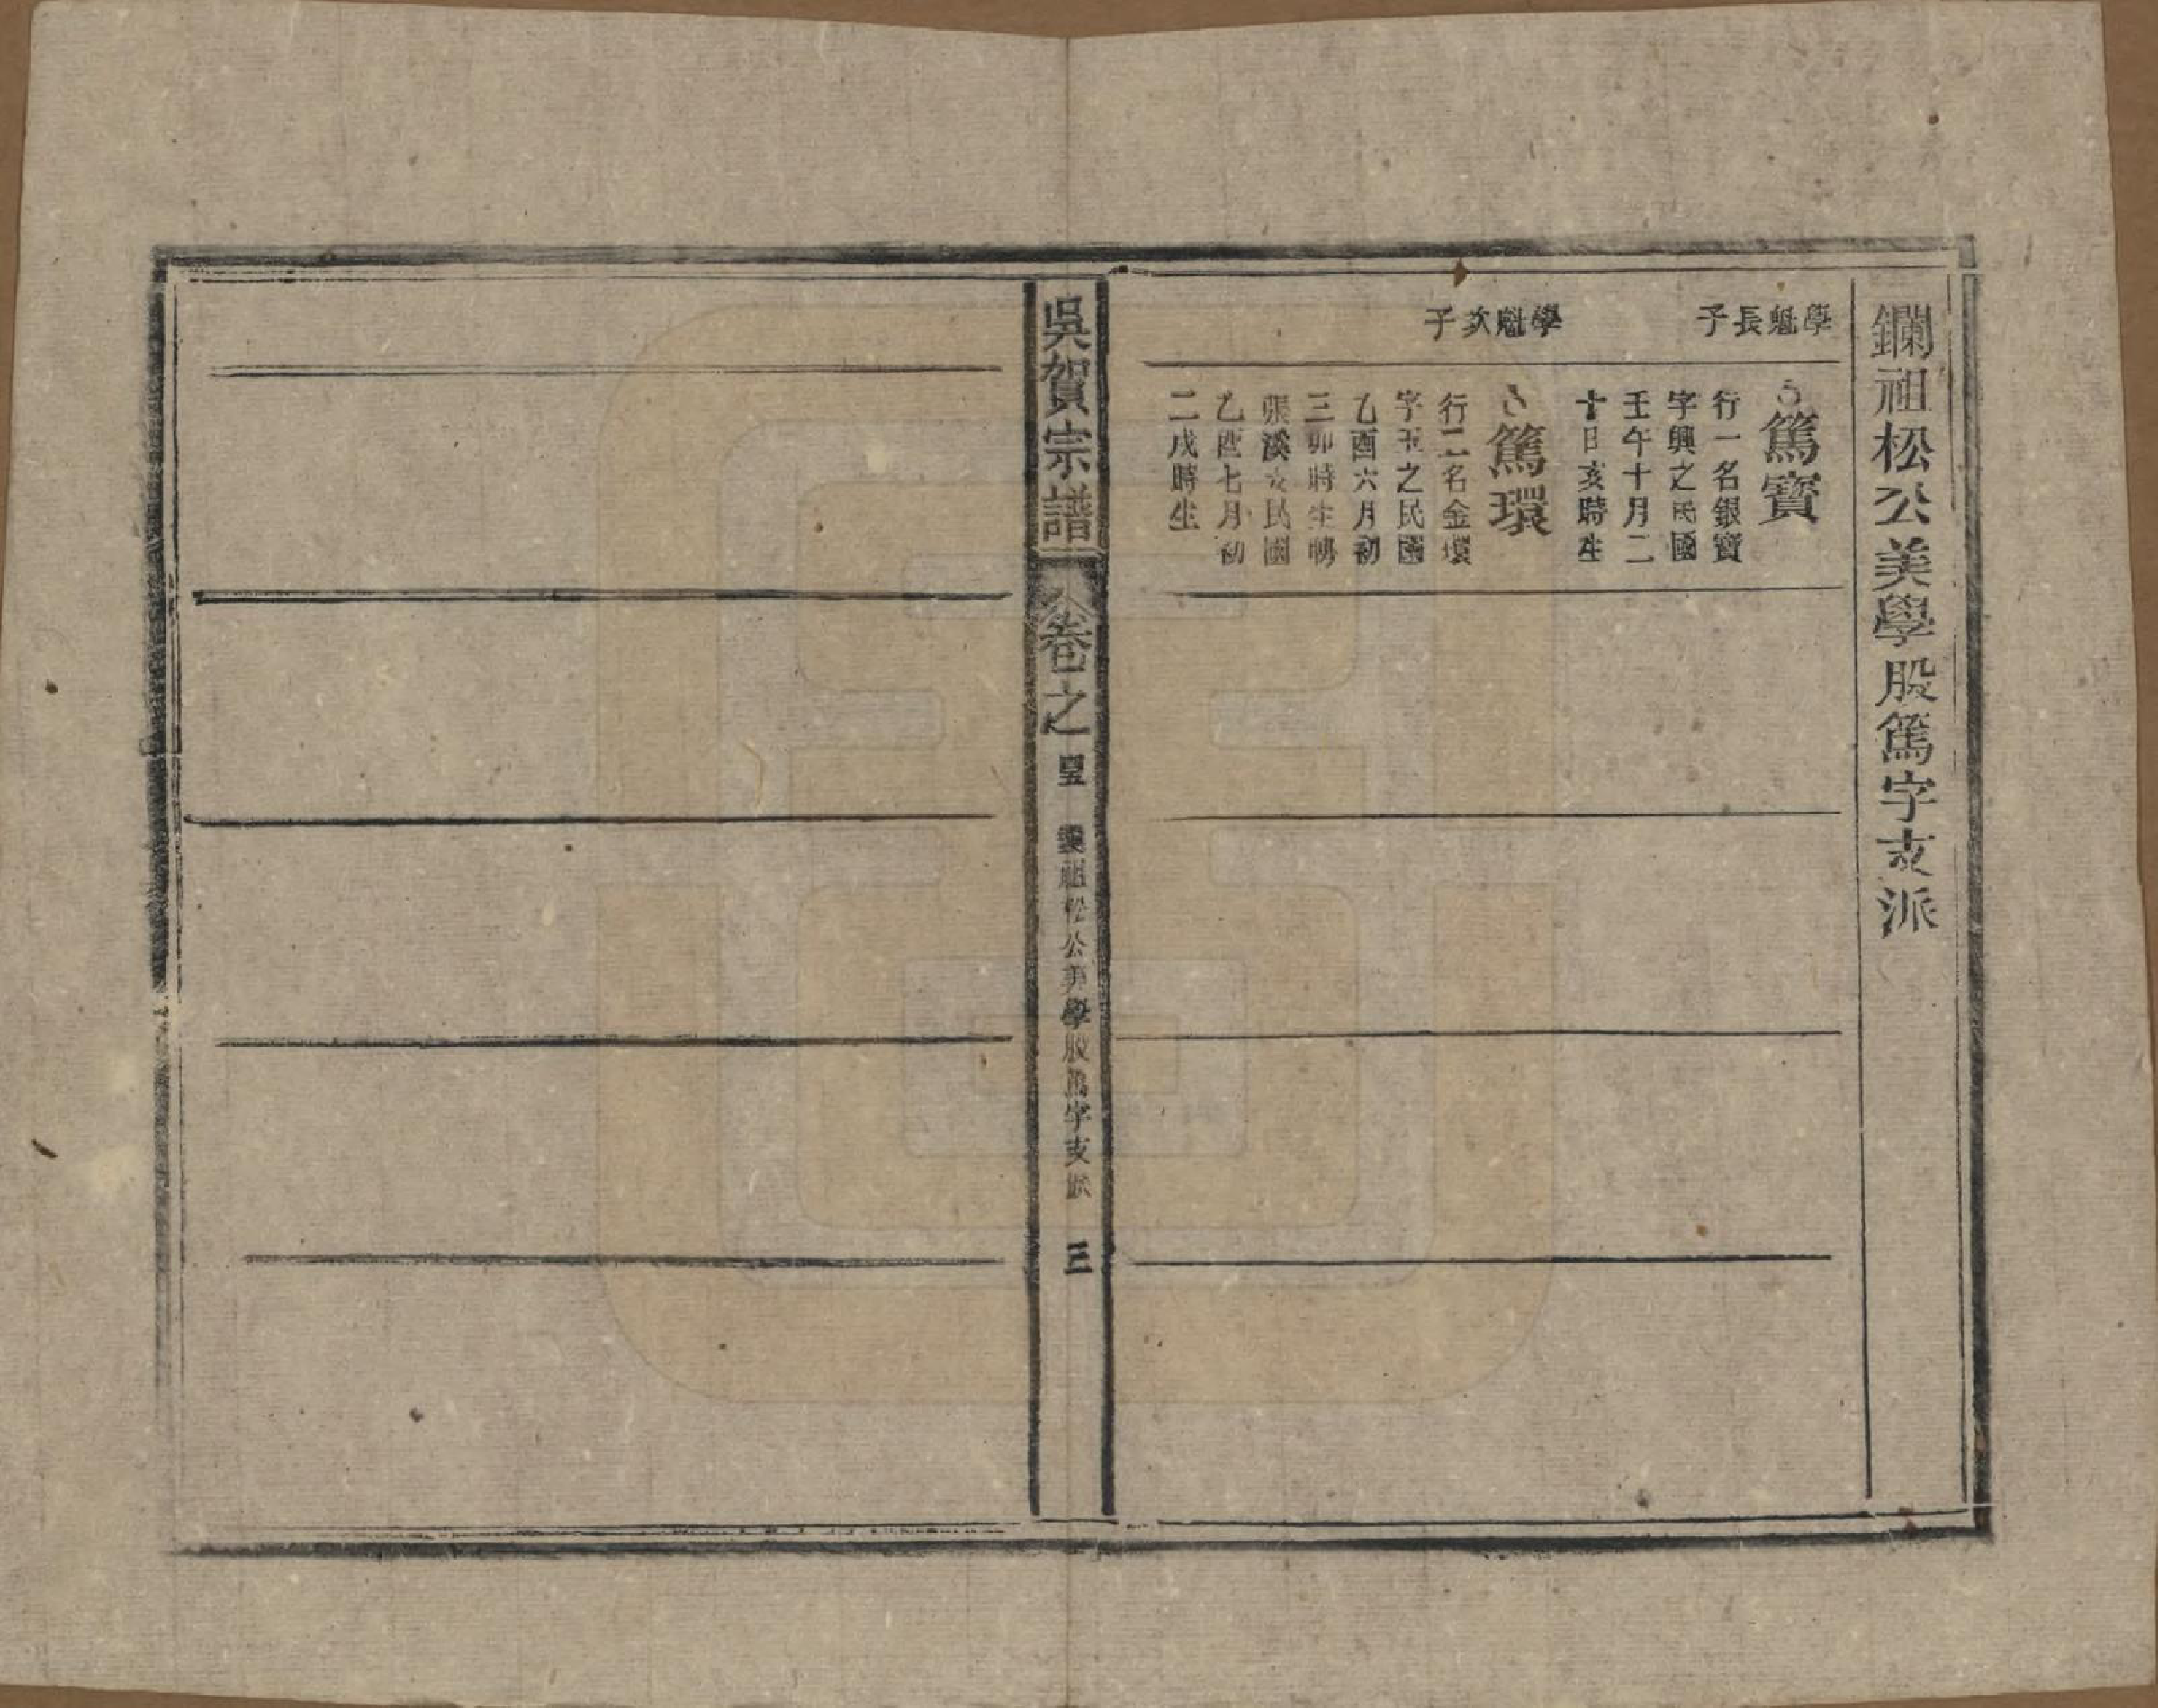 鑭祖松公美學股篤字支派
學魁長子
篤寶
行一名銀寶
字興之民國
壬午十月二
十日亥時生
學魁次子
篤環
行二名金環
字玉之民國
乙酉六月初
三卯時生聘
張溪女民國
乙酉七月初
二戌時生
吳賀宗譜
卷之
祖松公美學股篤字支派
三